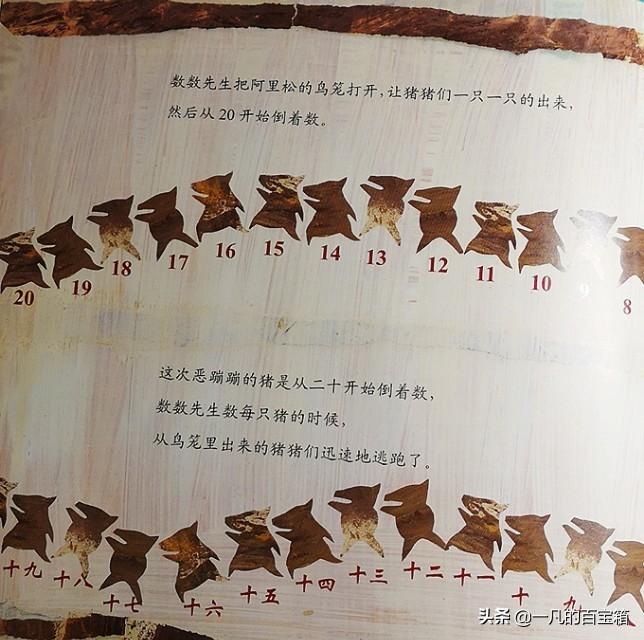 数数先生把阿里松的鸟笼打开，让猪猪们一只一只的出来，
然后从20开始倒着数。
20 19 18 17 16 15 14 13 12 11 10 9 8
这次恶蹦蹦的猪是从二十开始倒着数，
数数先生数每只猪的时候，
从鸟笼里出来的猪猪们迅速地逃跑了。
十九 十八 十七 十六 十五 十四 十三 十二 十一 十 九 八
头条 @一凡的百宝箱